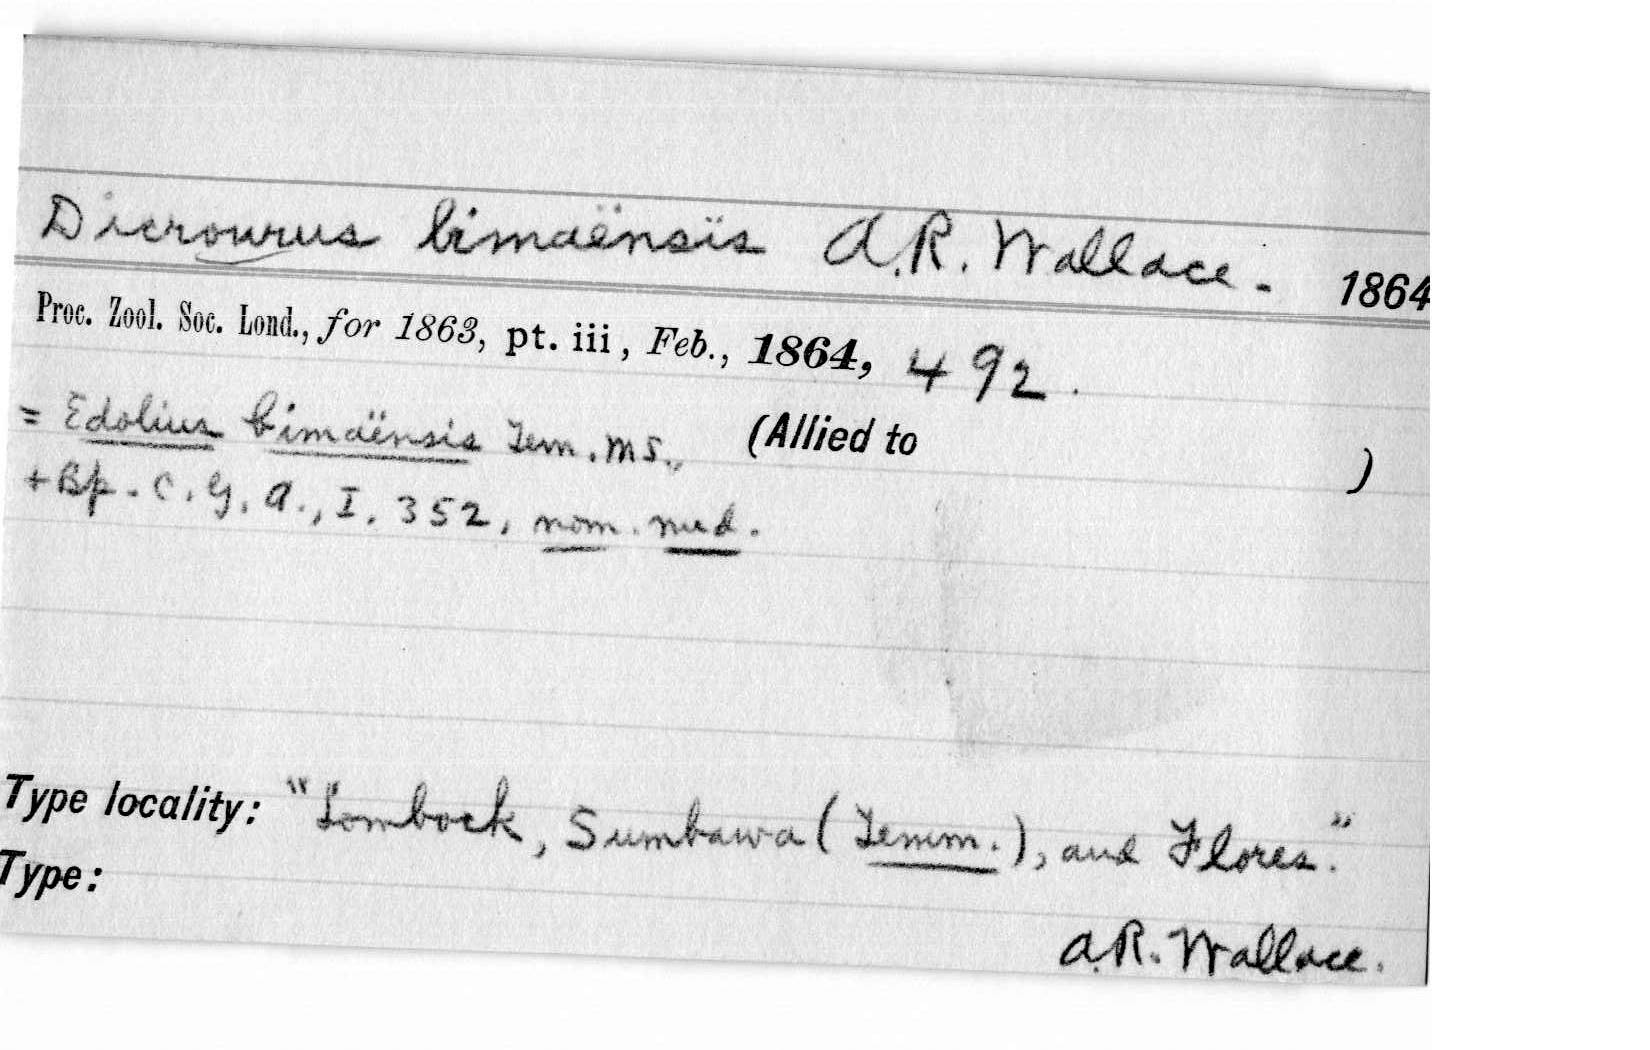 Dicrourus bimaënsis A.R. Wallace. 1864
Proc. Zool. Soc. Lond., for 1863, pt. iii, Feb., 1864, 492.
= Edolius bimaënsis Tem. MS., (Allied to )
+ Bp. C. G. A., I. 352, nom. nud.
Type locality: "Lombock, Sumbawa (Temm.), and Flores."
Type:
A.R. Wallace.